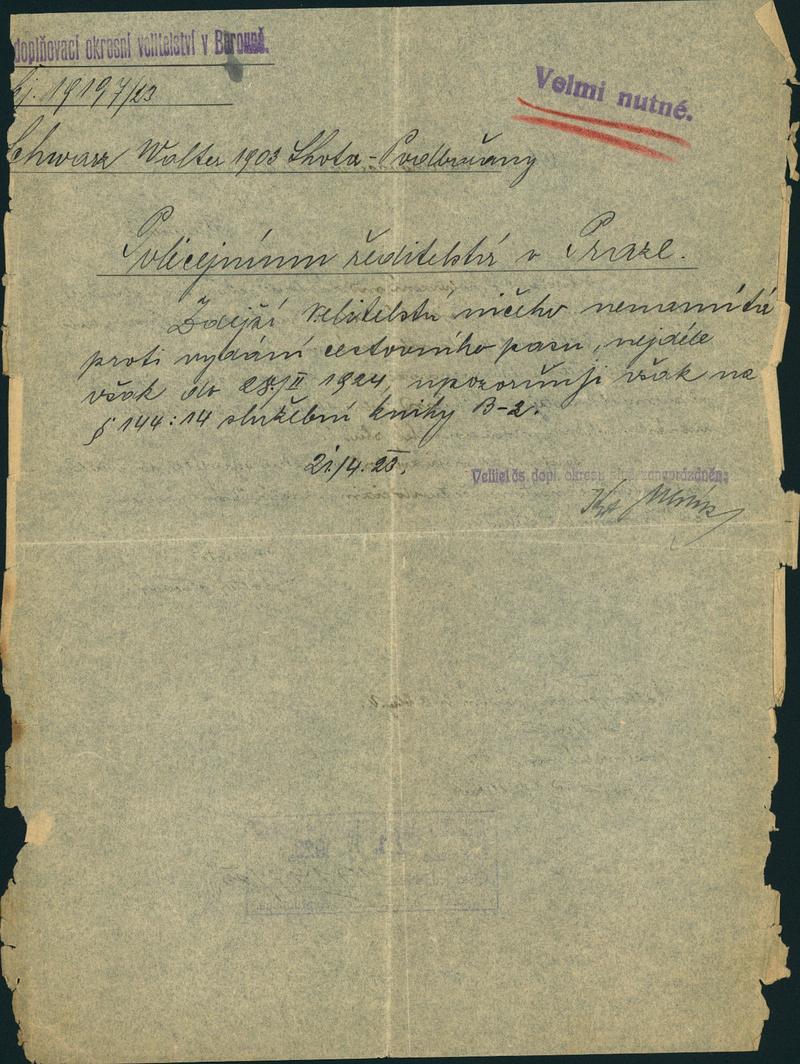 doplňovací okresní velitelství v Berouně.
čj. 19197/23
Velmi nutné.
Schwarz Walter 1903 Lhota-Podbořany
Policejnímu ředitelství v Praze.
Zdejší velitelství ničeho nenamítá
proti vydání cestovního pasu, nejdéle
však do 28./II 1924, upozorňuji však na
§ 144:14 služební knihy B-2.
21./4. 23.
Velitel čs. dopl. okresu